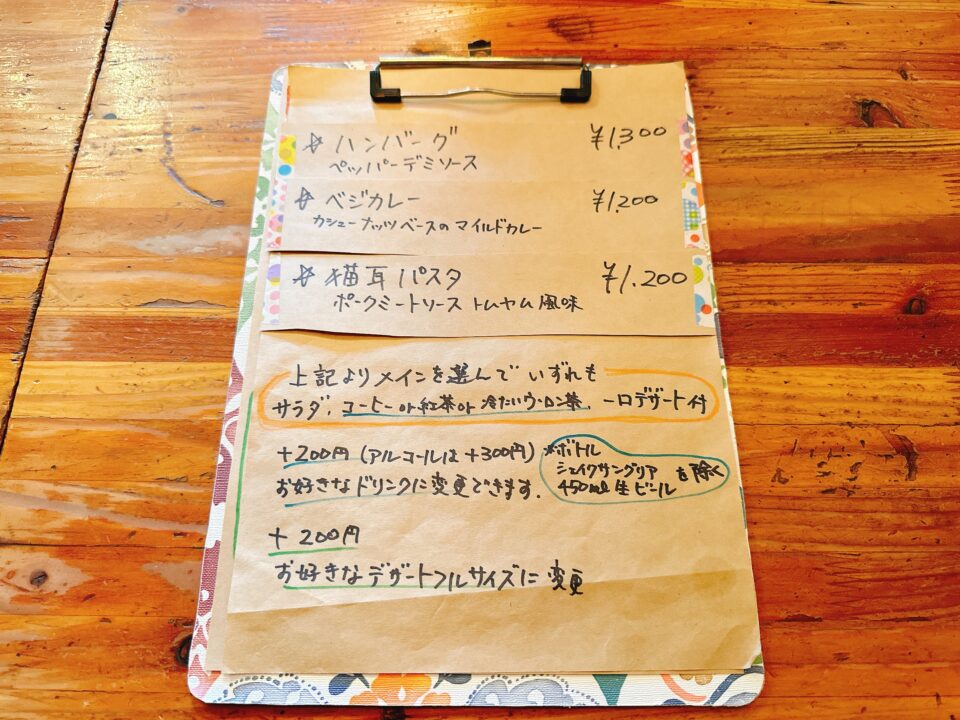 ☆ ハンバーグ ¥1,300
ペッパーデミソース
☆ ベジカレー ¥1,200
カシューナッツベースのマイルドカレー
☆ 猫耳パスタ ¥1,200
ポークミートソース トムヤム風味
上記よりメインを選んでいずれも
サラダ、コーヒーor紅茶or冷たいウーロン茶、一口デザート付
+200円(アルコールは+300円)
お好きなドリンクに変更できます.
※ボトル
シェイクサングリア を除く
450ml生ビール
+200円
お好きなデザートフルサイズに変更